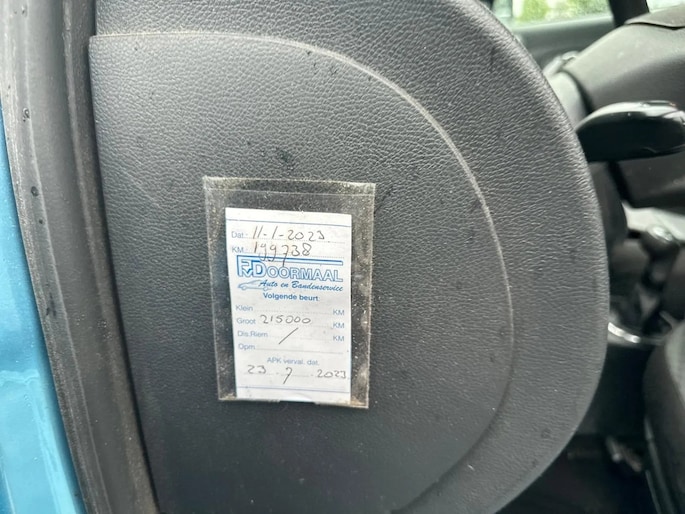 Dat: 11-1-2023.
KM: 199738
RvDOORMAAL
Auto en Bandenservice
Volgende beurt
Klein KM
Groot 215000 KM
Dis.Riem / KM
Opm.
APK verval. dat.
23 . 7 . 2023